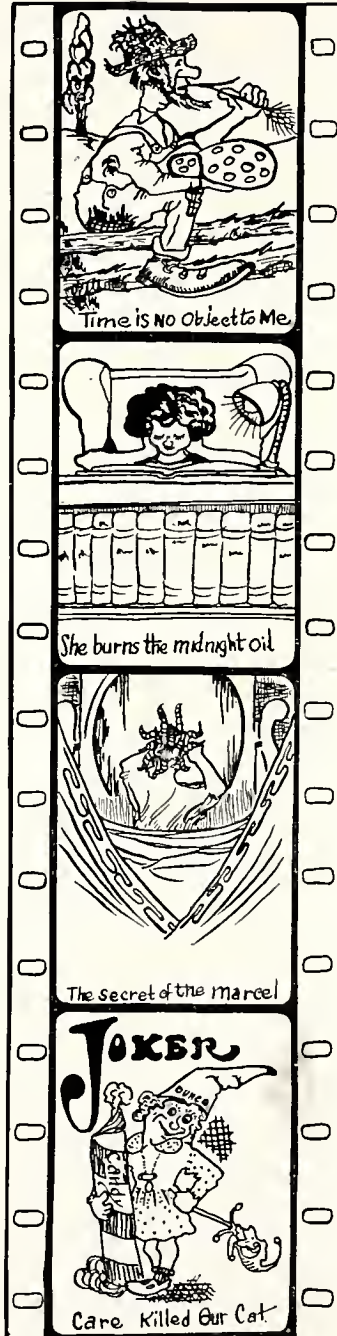 Time is No Object to Me
She burns the midnight oil
The secret of the marcel
JOKER
DUNCE
Candy
Care Killed Our Cat.